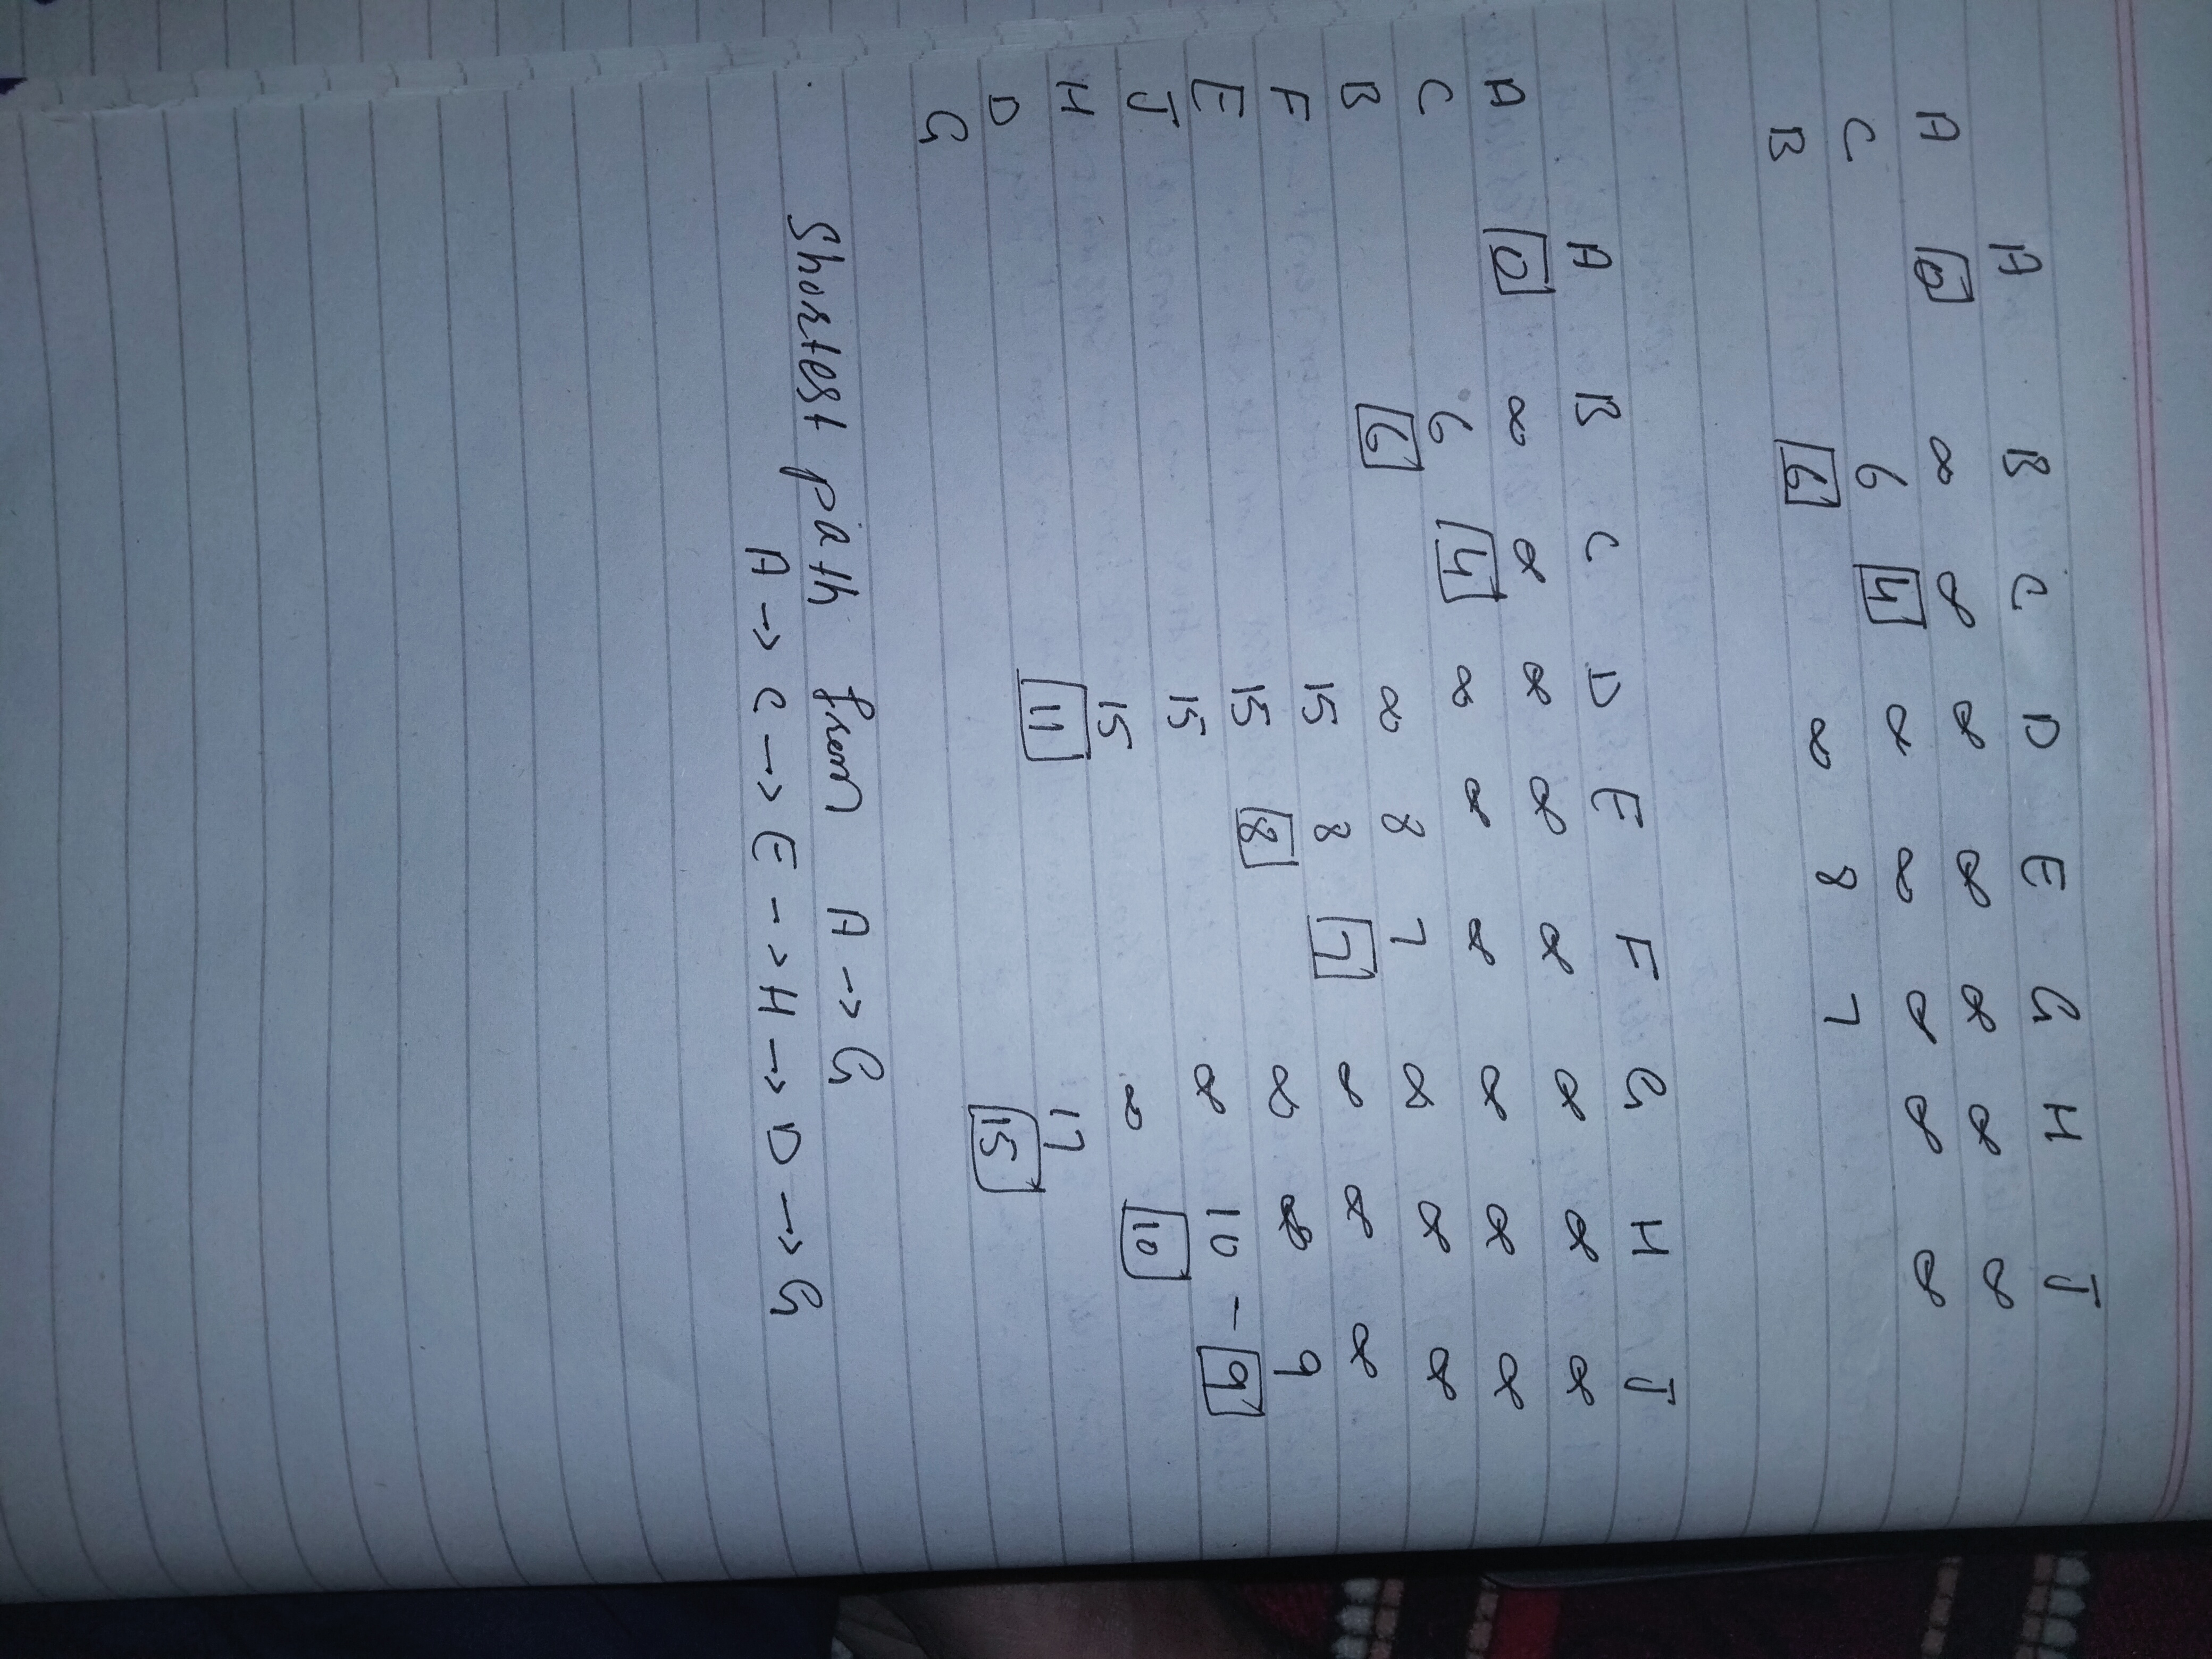 A B C D E G H J
A 0 ∞ ∞ ∞ ∞ ∞ ∞ ∞
C 6 4 ∞ ∞ ∞ ∞ ∞
B 6 ∞ 8 7
A B C D E F G H J
A 0 ∞ ∞ ∞ ∞ ∞ ∞ ∞ ∞
C 6 4 ∞ ∞ ∞ ∞ ∞ ∞
B 6 ∞ 8 7 ∞ ∞ ∞
F 15 8 7 ∞ ∞ ∞
E 15 8 ∞ ∞ 9
J 15 ∞ 10 - 9
H 15 ∞ 10
D 11 17
G 15
Shortest path from A -> G
A -> C -> E -> H -> D -> G